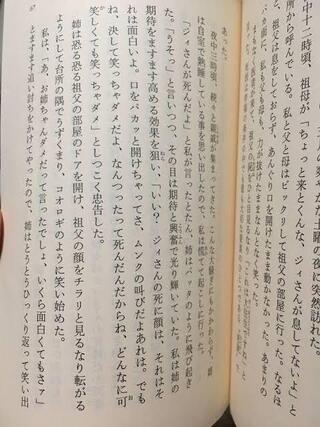 土曜の夜に突然訪れた。
中十二時頃、祖母が「ちょっと来とくんな、ジィさんが息してないよ」と
所から呼んでいる。私と父と母はビックリして祖父の部屋に行った。なるほ
ど、祖父は息をしておらず、あんぐり口を開けたまま動かなかった。あまりの
力が抜けたまんなんとなく笑った。
あった。
夜中三時頃、続々と親戚が集まってきた。こんな大騒ぎにもかかわらず、姉
は自室で熟睡している事を思い出したので、私は慌てて起こしに行った。
「ジィさんが死んだよ」と私が言ったとたん、姉はバッタのように飛び起き
た。「うそっ」と言いつつ、その目は期待と興奮で光り輝いていた。私は姉の
期待をますます高める効果を狙い、「いい?ジィさんの死に顔は、それはそ
れは面白いよ。口をパカッと開けちゃってさ、ムンクの叫びだよあれは。でも
ね、決して笑っちゃダメだよ、なんつったって死んだんだからね、どんなに可
笑しくても笑っちゃダメ」としつこく忠告した。
姉は恐る恐る祖父の部屋のドアを開け、祖父の顔をチラリと見るなり転がる
ようにして台所の隅でうずくまり、コオロギのように笑い始めた。
私は、「あ、お姉ちゃんダメだって言ったでしょ、いくら面白くてもさァ」
とますます追い討ちをかけてやったので、姉はとうとうひっくり返って笑い出